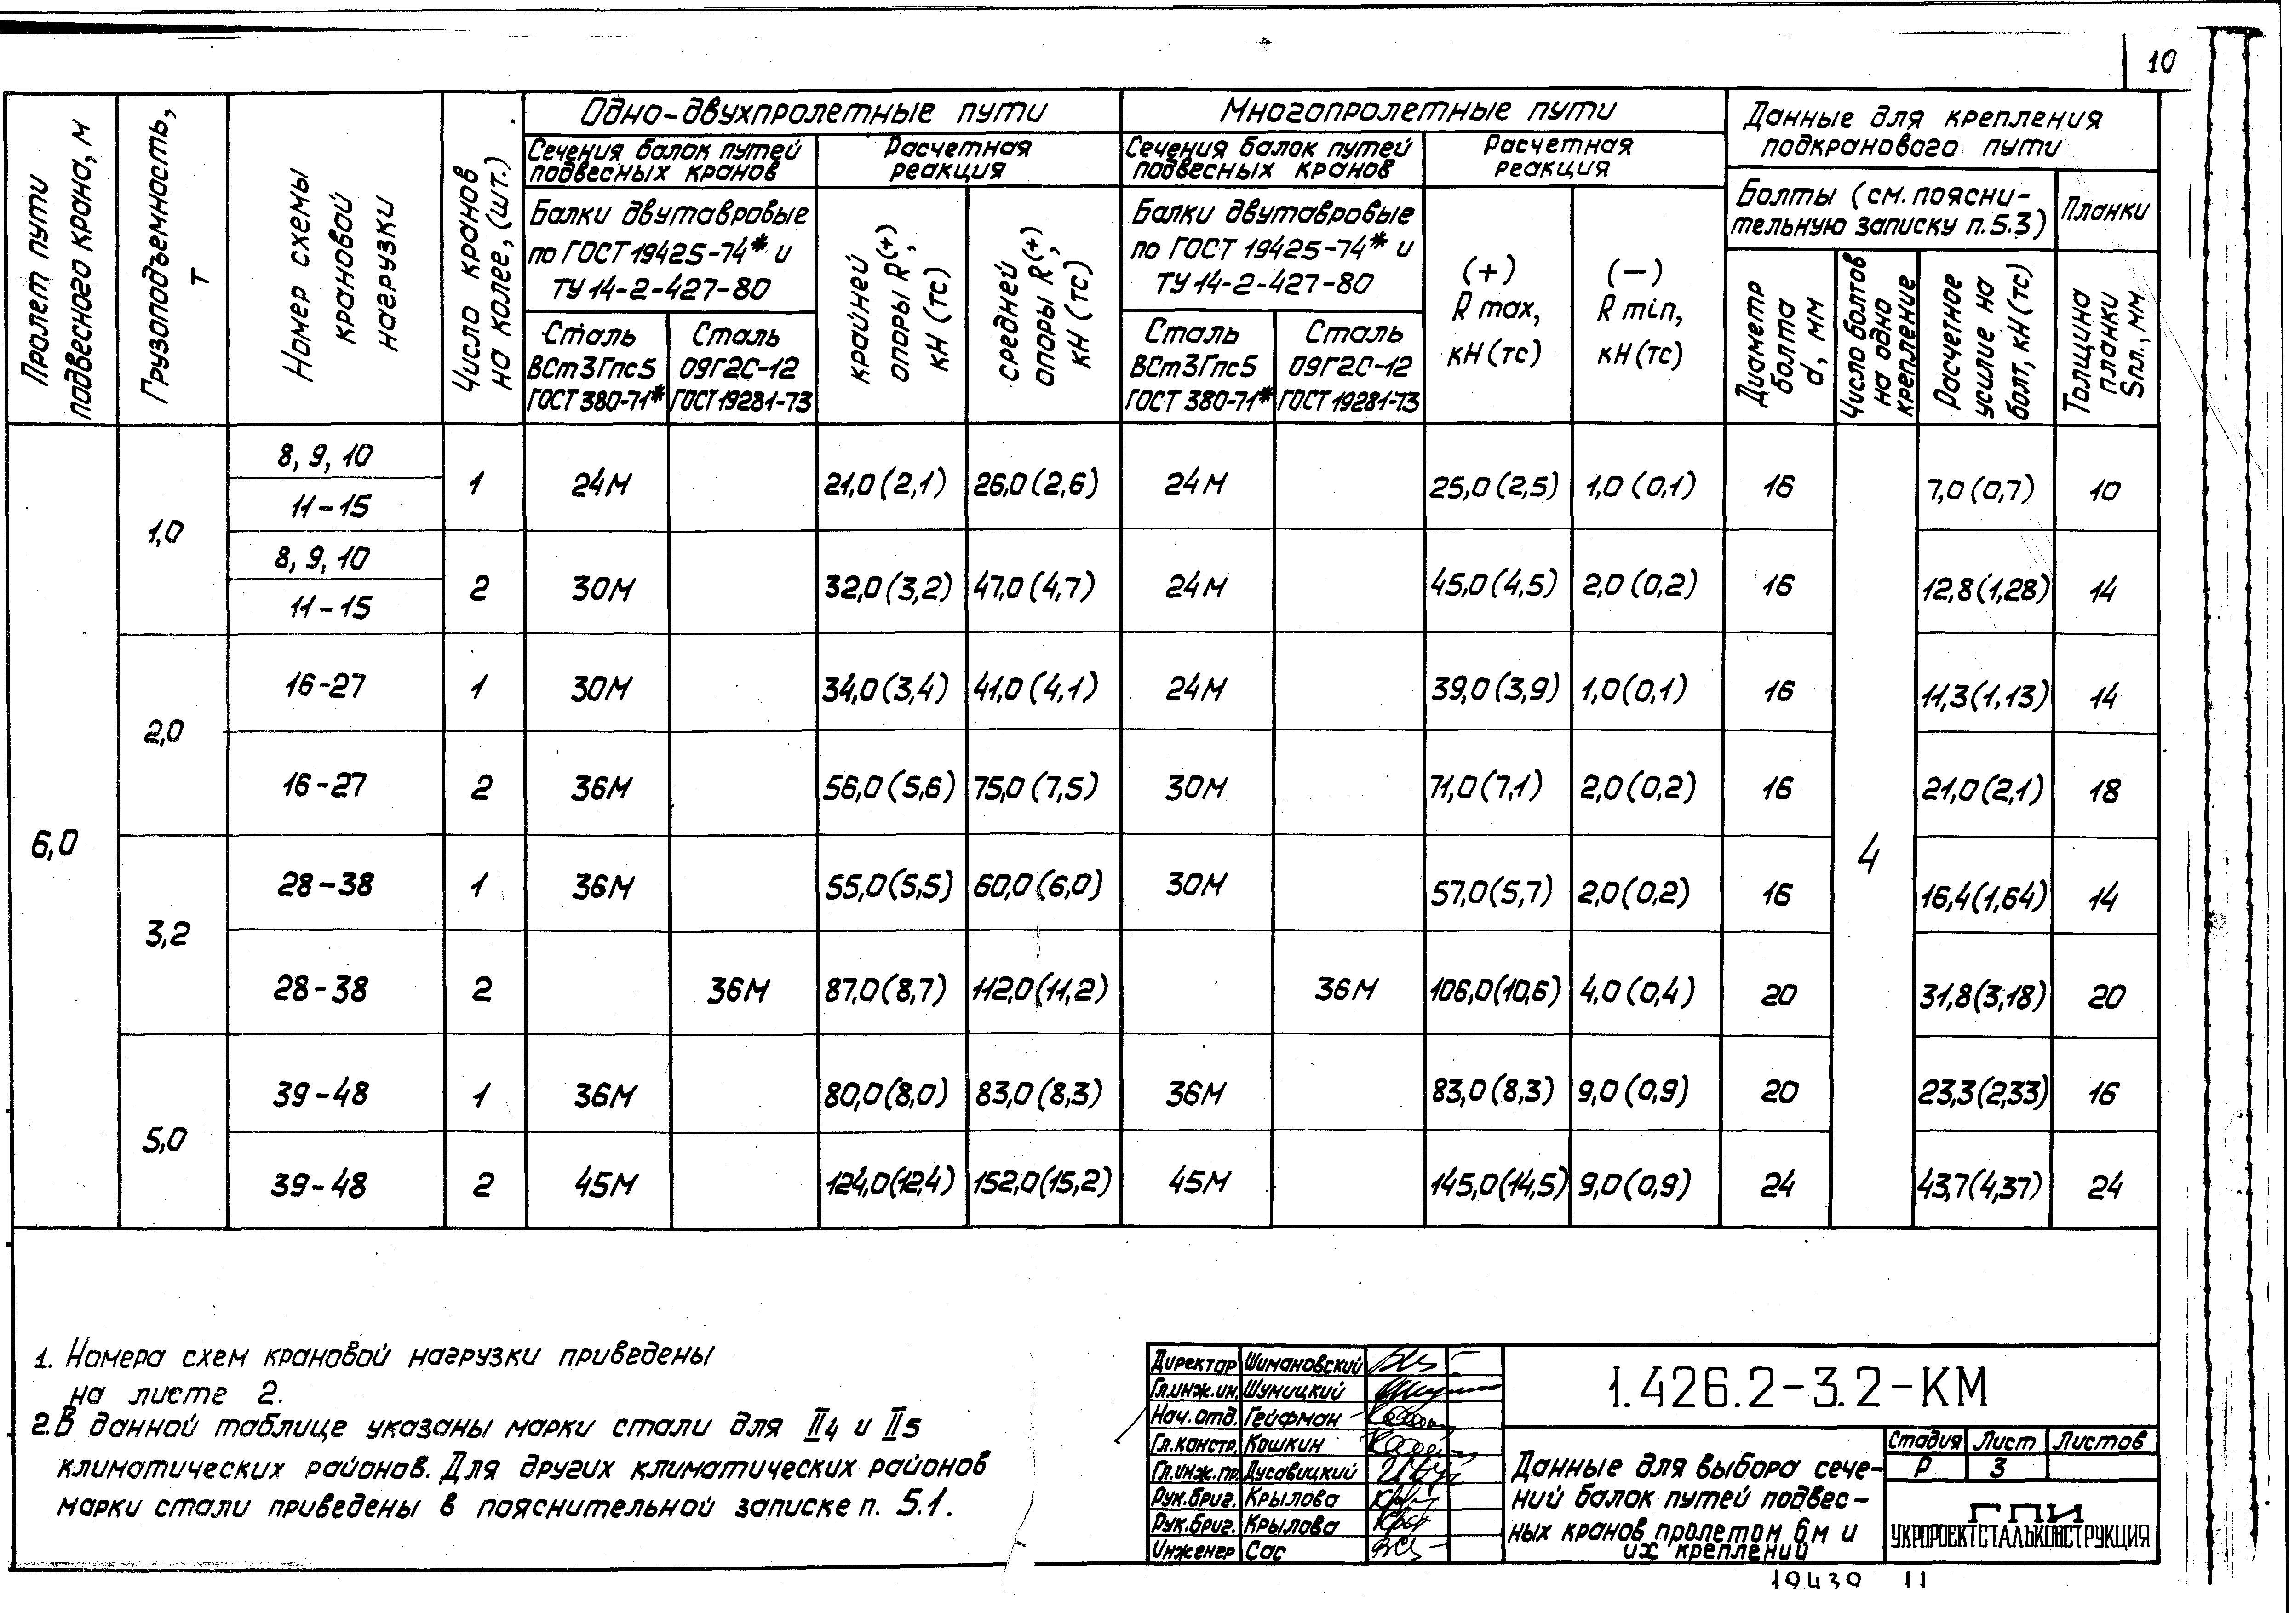 10
Пролет пути подвесного крана, м
Грузоподъемность, т
Номер схемы крановой нагрузки
Число кранов на колее, (шт.)
Одно-двухпролетные пути
Многопролетные пути
Данные для крепления
подкранового пути
Сечения балок путей
подвесных кранов
Расчетная
реакция
Сечения балок путей
подвесных кранов
Расчетная
реакция
Болты (см. поясни-
тельную записку п.5.3)
Планки
Балки двутавровые
по ГОСТ 19425-74* и
ТУ 14-2-427-80
крайней опоры R(+), кН (тс)
средней опоры R(+), кН (тс)
Балки двутавровые
по ГОСТ 19425-74* и
ТУ 14-2-427-80
(+)
R max,
кН (тс)
(−)
R min,
кН (тс)
Диаметр болта d, мм
Число болтов на одно крепление
Расчетное усилие на болт, кН (тс)
Толщина планки Sпл., мм
Сталь
ВСт3Гпс5
ГОСТ 380-71*
Сталь
09Г2С-12
ГОСТ 19281-73
Сталь
ВСт3Гпс5
ГОСТ 380-71*
Сталь
09Г2С-12
ГОСТ 19281-73
6,0
4
1,0
8, 9, 10
11-15
1 24М 21,0 (2,1) 26,0 (2,6) 24М 25,0 (2,5) 1,0 (0,1) 16 7,0 (0,7) 10
8, 9, 10
11-15
2 30М 32,0 (3,2) 47,0 (4,7) 24М 45,0 (4,5) 2,0 (0,2) 16 12,8 (1,28) 14
2,0
16-27 1 30М 34,0 (3,4) 41,0 (4,1) 24М 39,0 (3,9) 1,0 (0,1) 16 11,3 (1,13) 14
16-27 2 36М 56,0 (5,6) 75,0 (7,5) 30М 71,0 (7,1) 2,0 (0,2) 16 21,0 (2,1) 18
3,2
28-38 1 36М 55,0 (5,5) 60,0 (6,0) 30М 57,0 (5,7) 2,0 (0,2) 16 16,4 (1,64) 14
28-38 2 36М 87,0 (8,7) 112,0 (11,2) 36М 106,0 (10,6) 4,0 (0,4) 20 31,8 (3,18) 20
5,0
39-48 1 36М 80,0 (8,0) 83,0 (8,3) 36М 83,0 (8,3) 9,0 (0,9) 20 23,3 (2,33) 16
39-48 2 45М 124,0 (12,4) 152,0 (15,2) 45М 145,0 (14,5) 9,0 (0,9) 24 43,7 (4,37) 24
1. Номера схем крановой нагрузки приведены
на листе 2.
2. В данной таблице указаны марки стали для II4 и II5
климатических районов. Для других климатических районов
марки стали приведены в пояснительной записке п. 5.1.
Директор Шимановский
Гл.инж.ин. Шумицкий
Нач. отд. Гейфман
Гл.констр. Кошкин
Гл.инж.пр. Дусавицкий
Рук.бриг. Крылова
Рук.бриг. Крылова
Инженер Сас
1.426.2-3.2-КМ
Данные для выбора сече-
ний балок путей подвес-
ных кранов пролетом 6м и
их креплений
Стадия Лист Листов
Р 3
ГПИ
УКРПРОЕКТСТАЛЬКОНСТРУКЦИЯ
19439 11